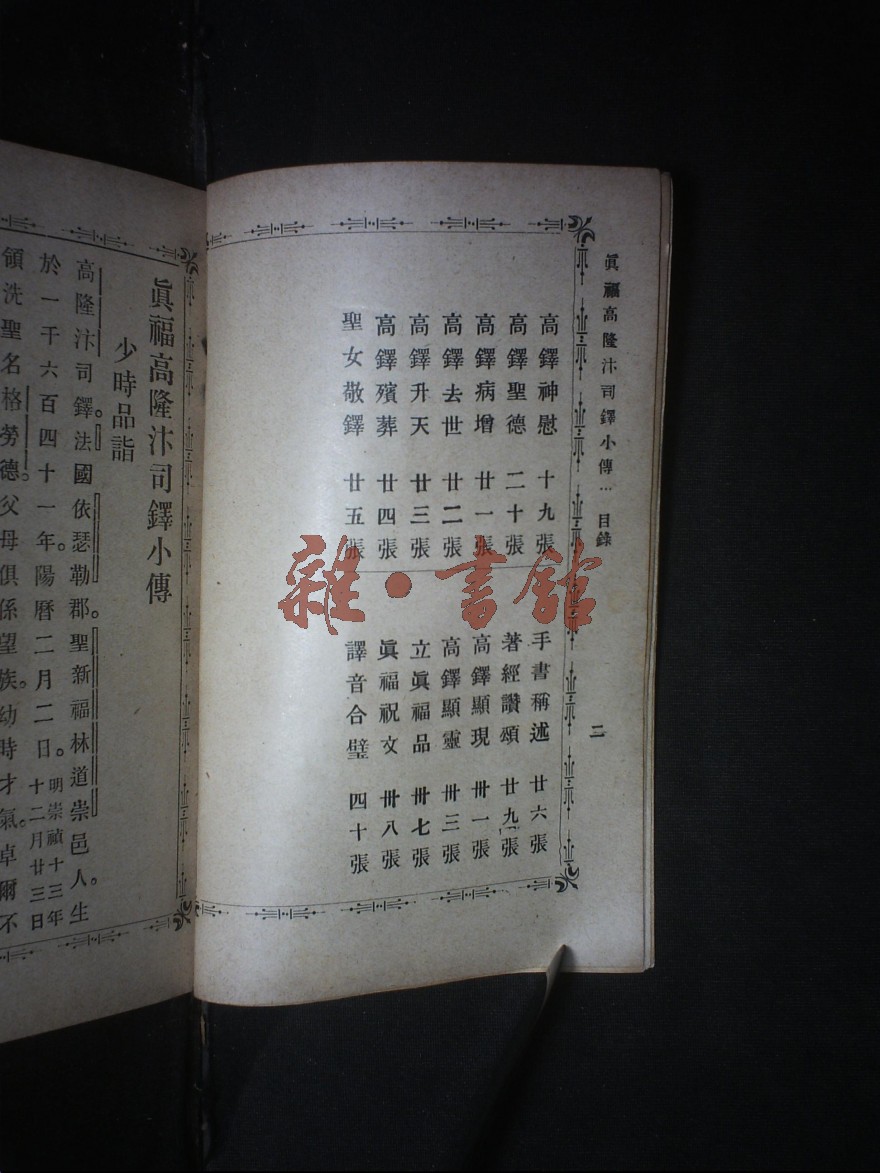 眞福高隆汴司鐸小傳… 目錄
二
高鐸神慰 十九張
高鐸聖德 二十張
高鐸病增 廿一張
高鐸去世 廿二張
高鐸升天 廿三張
高鐸殯葬 廿四張
聖女敬鐸 廿五張
手書稱述 廿六張
著經讚頌 廿九張
高鐸顯現 卅一張
高鐸顯靈 卅三張
立眞福品 卅七張
眞福祝文 卅八張
譯音合璧 四十張
雜·書館
眞福高隆汴司鐸小傳
少時品詣
高隆汴司鐸。法國依瑟勒郡。聖新福林道崇邑人。生
於一千六百四十一年。陽曆二月二日。明崇禎十三年十二月廿三日
領洗聖名格勞德。父母俱係望族。幼時才氣。卓爾不